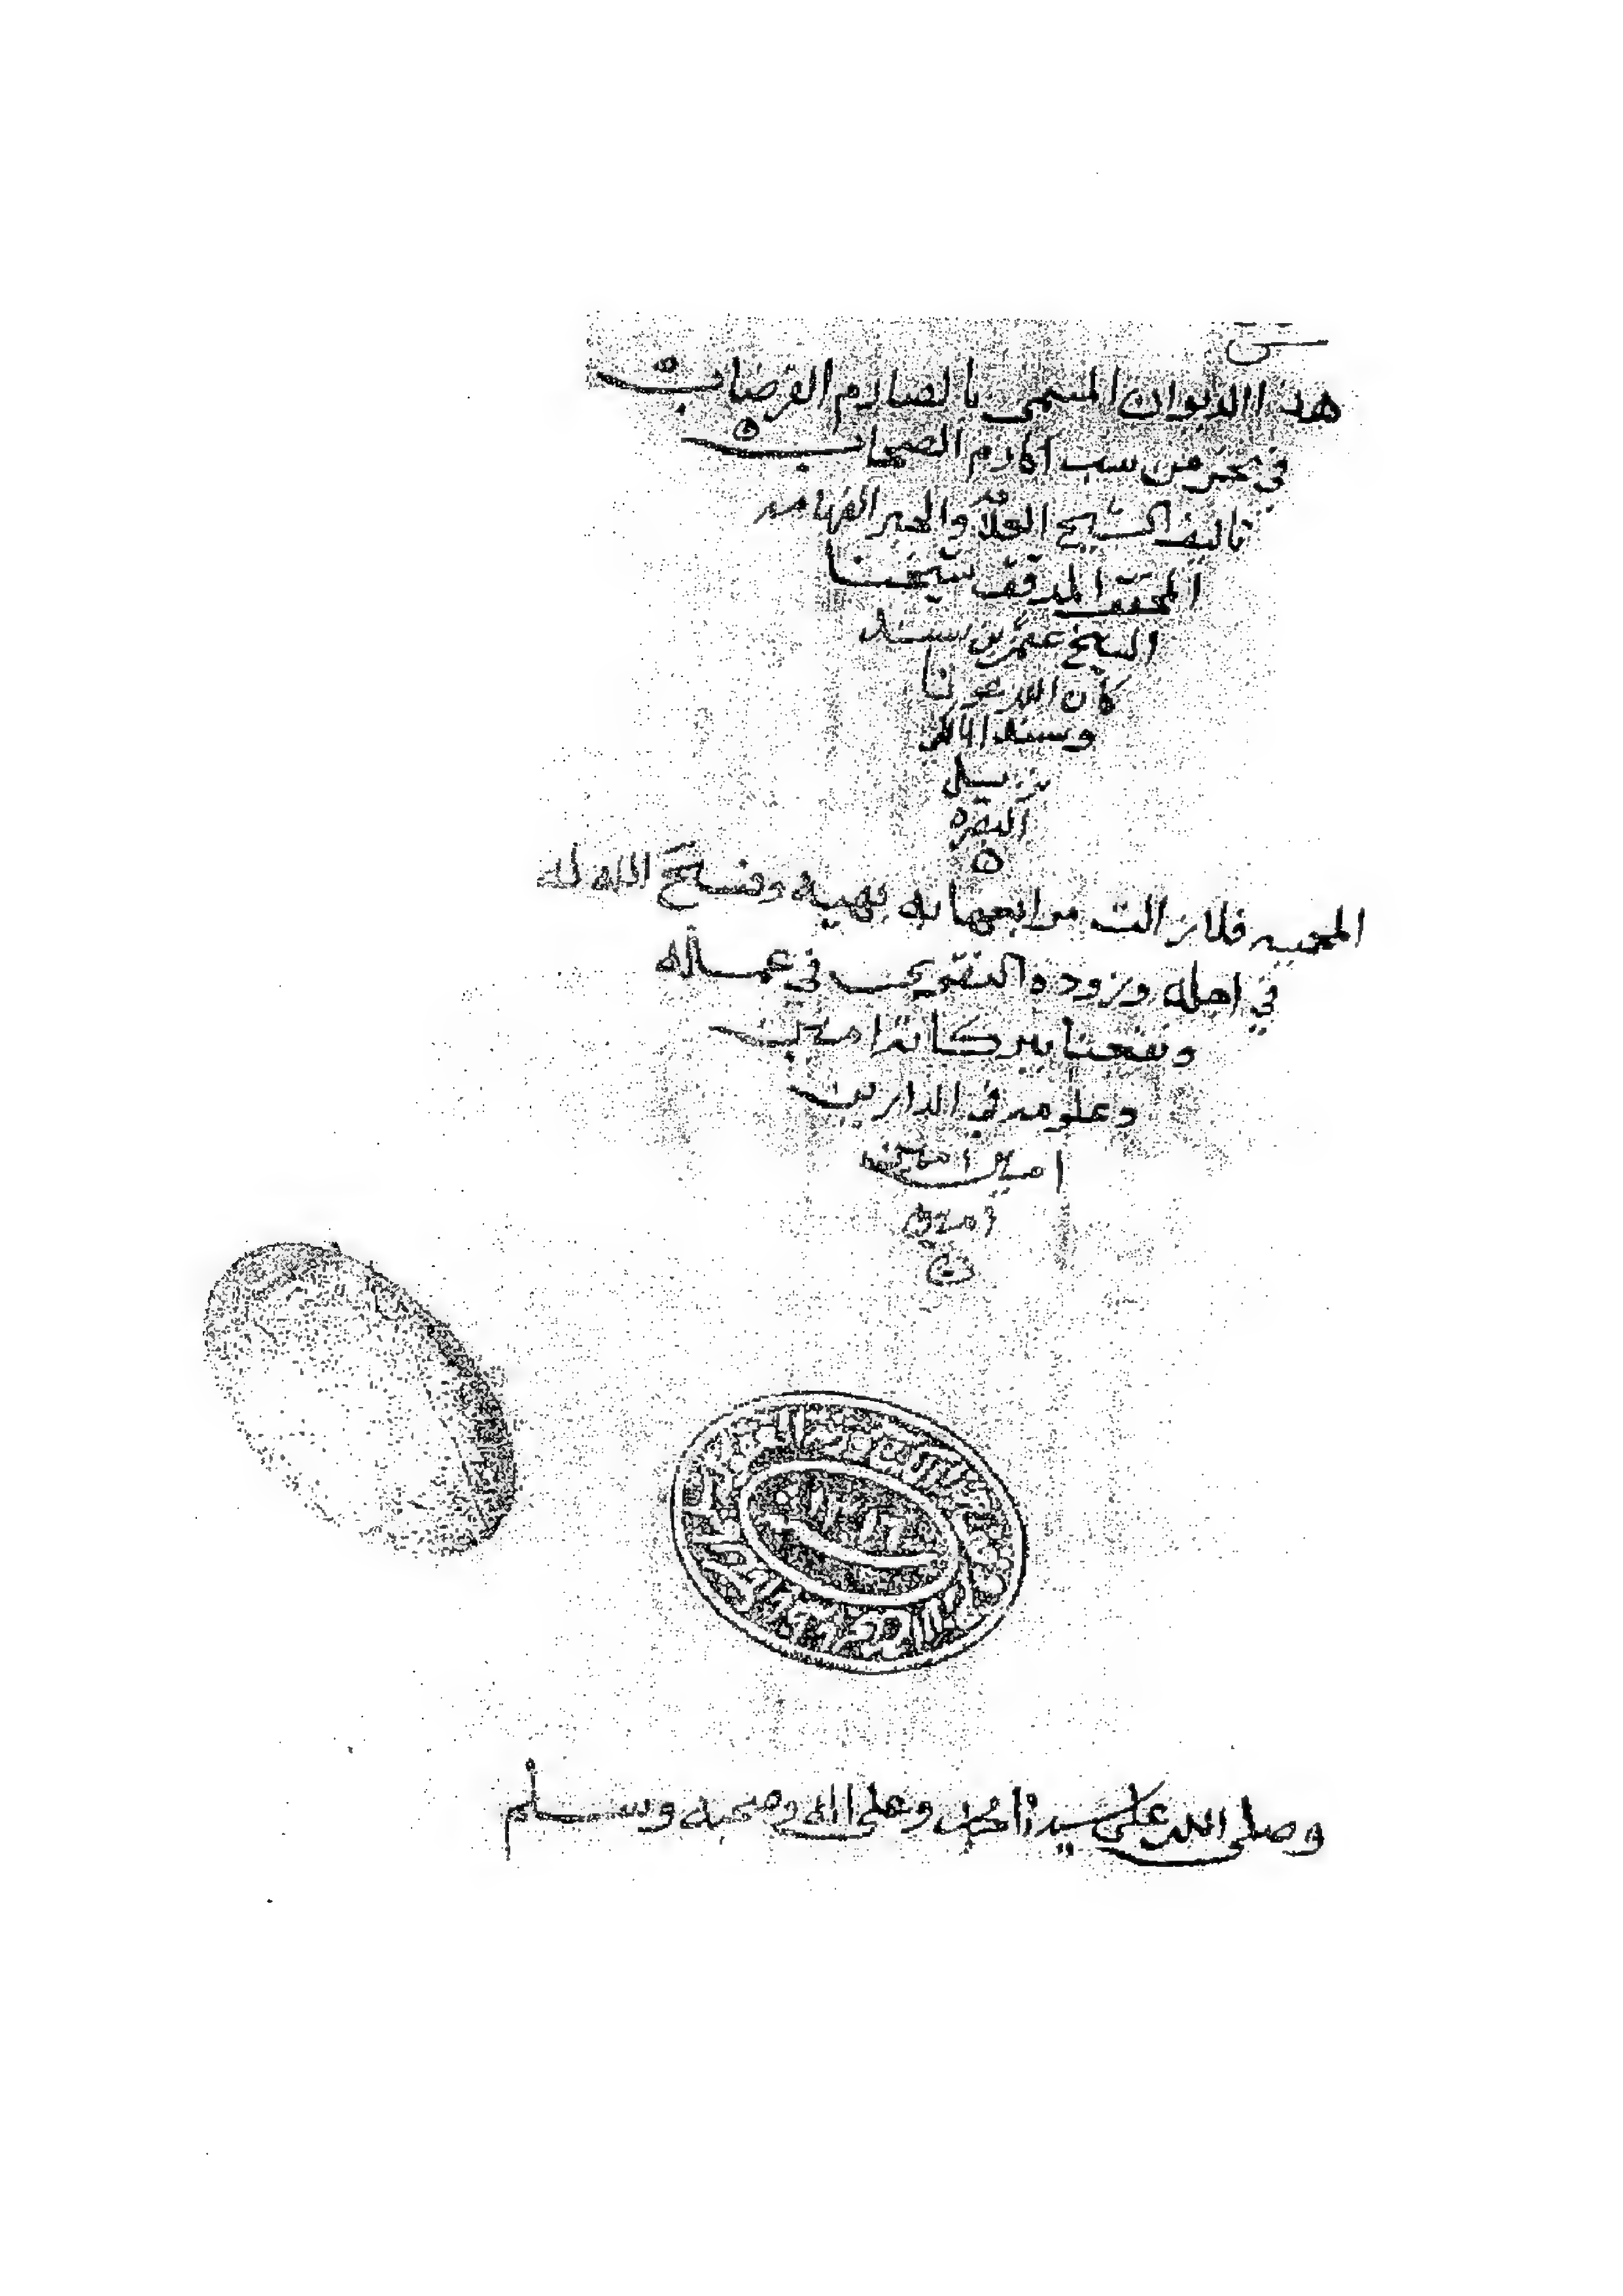 هذا الديوان المسمى بالصارم القرضاب
في نحر من سب اكارم الاصحاب
تاليف الشيخ العلامة والحبر الفهامه
المحقق المدقق شيخنا
الشيخ عثمن بن سند
كان الله عونا
وسندا المالكي
نزيل
البصره
المحميه فلا زالت مرابعها به بهيه وفسح الله له
في اهله وزوده التقوى في عمله
ونفعنا ببركاته امين
وعلومه في الدارين
امين امين
امين
وصلى الله على سيدنا محمد وعلى اله وصحبه وسلم